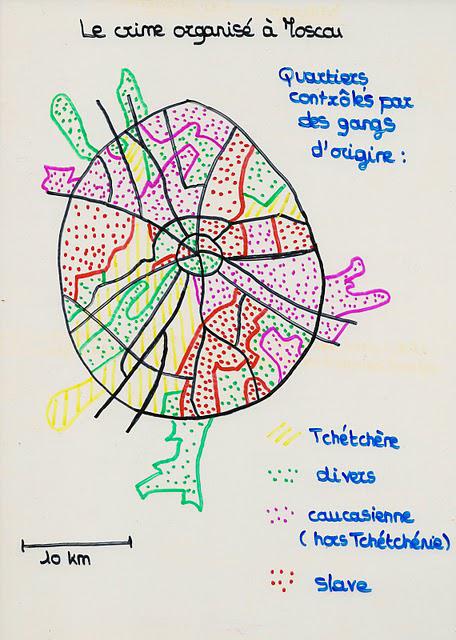 Le crime organisé à Moscou
Quartiers
contrôlés par
des gangs
d'origine :
Tchétchère
divers
caucasienne
( hors Tchétchénie)
slave
10 km